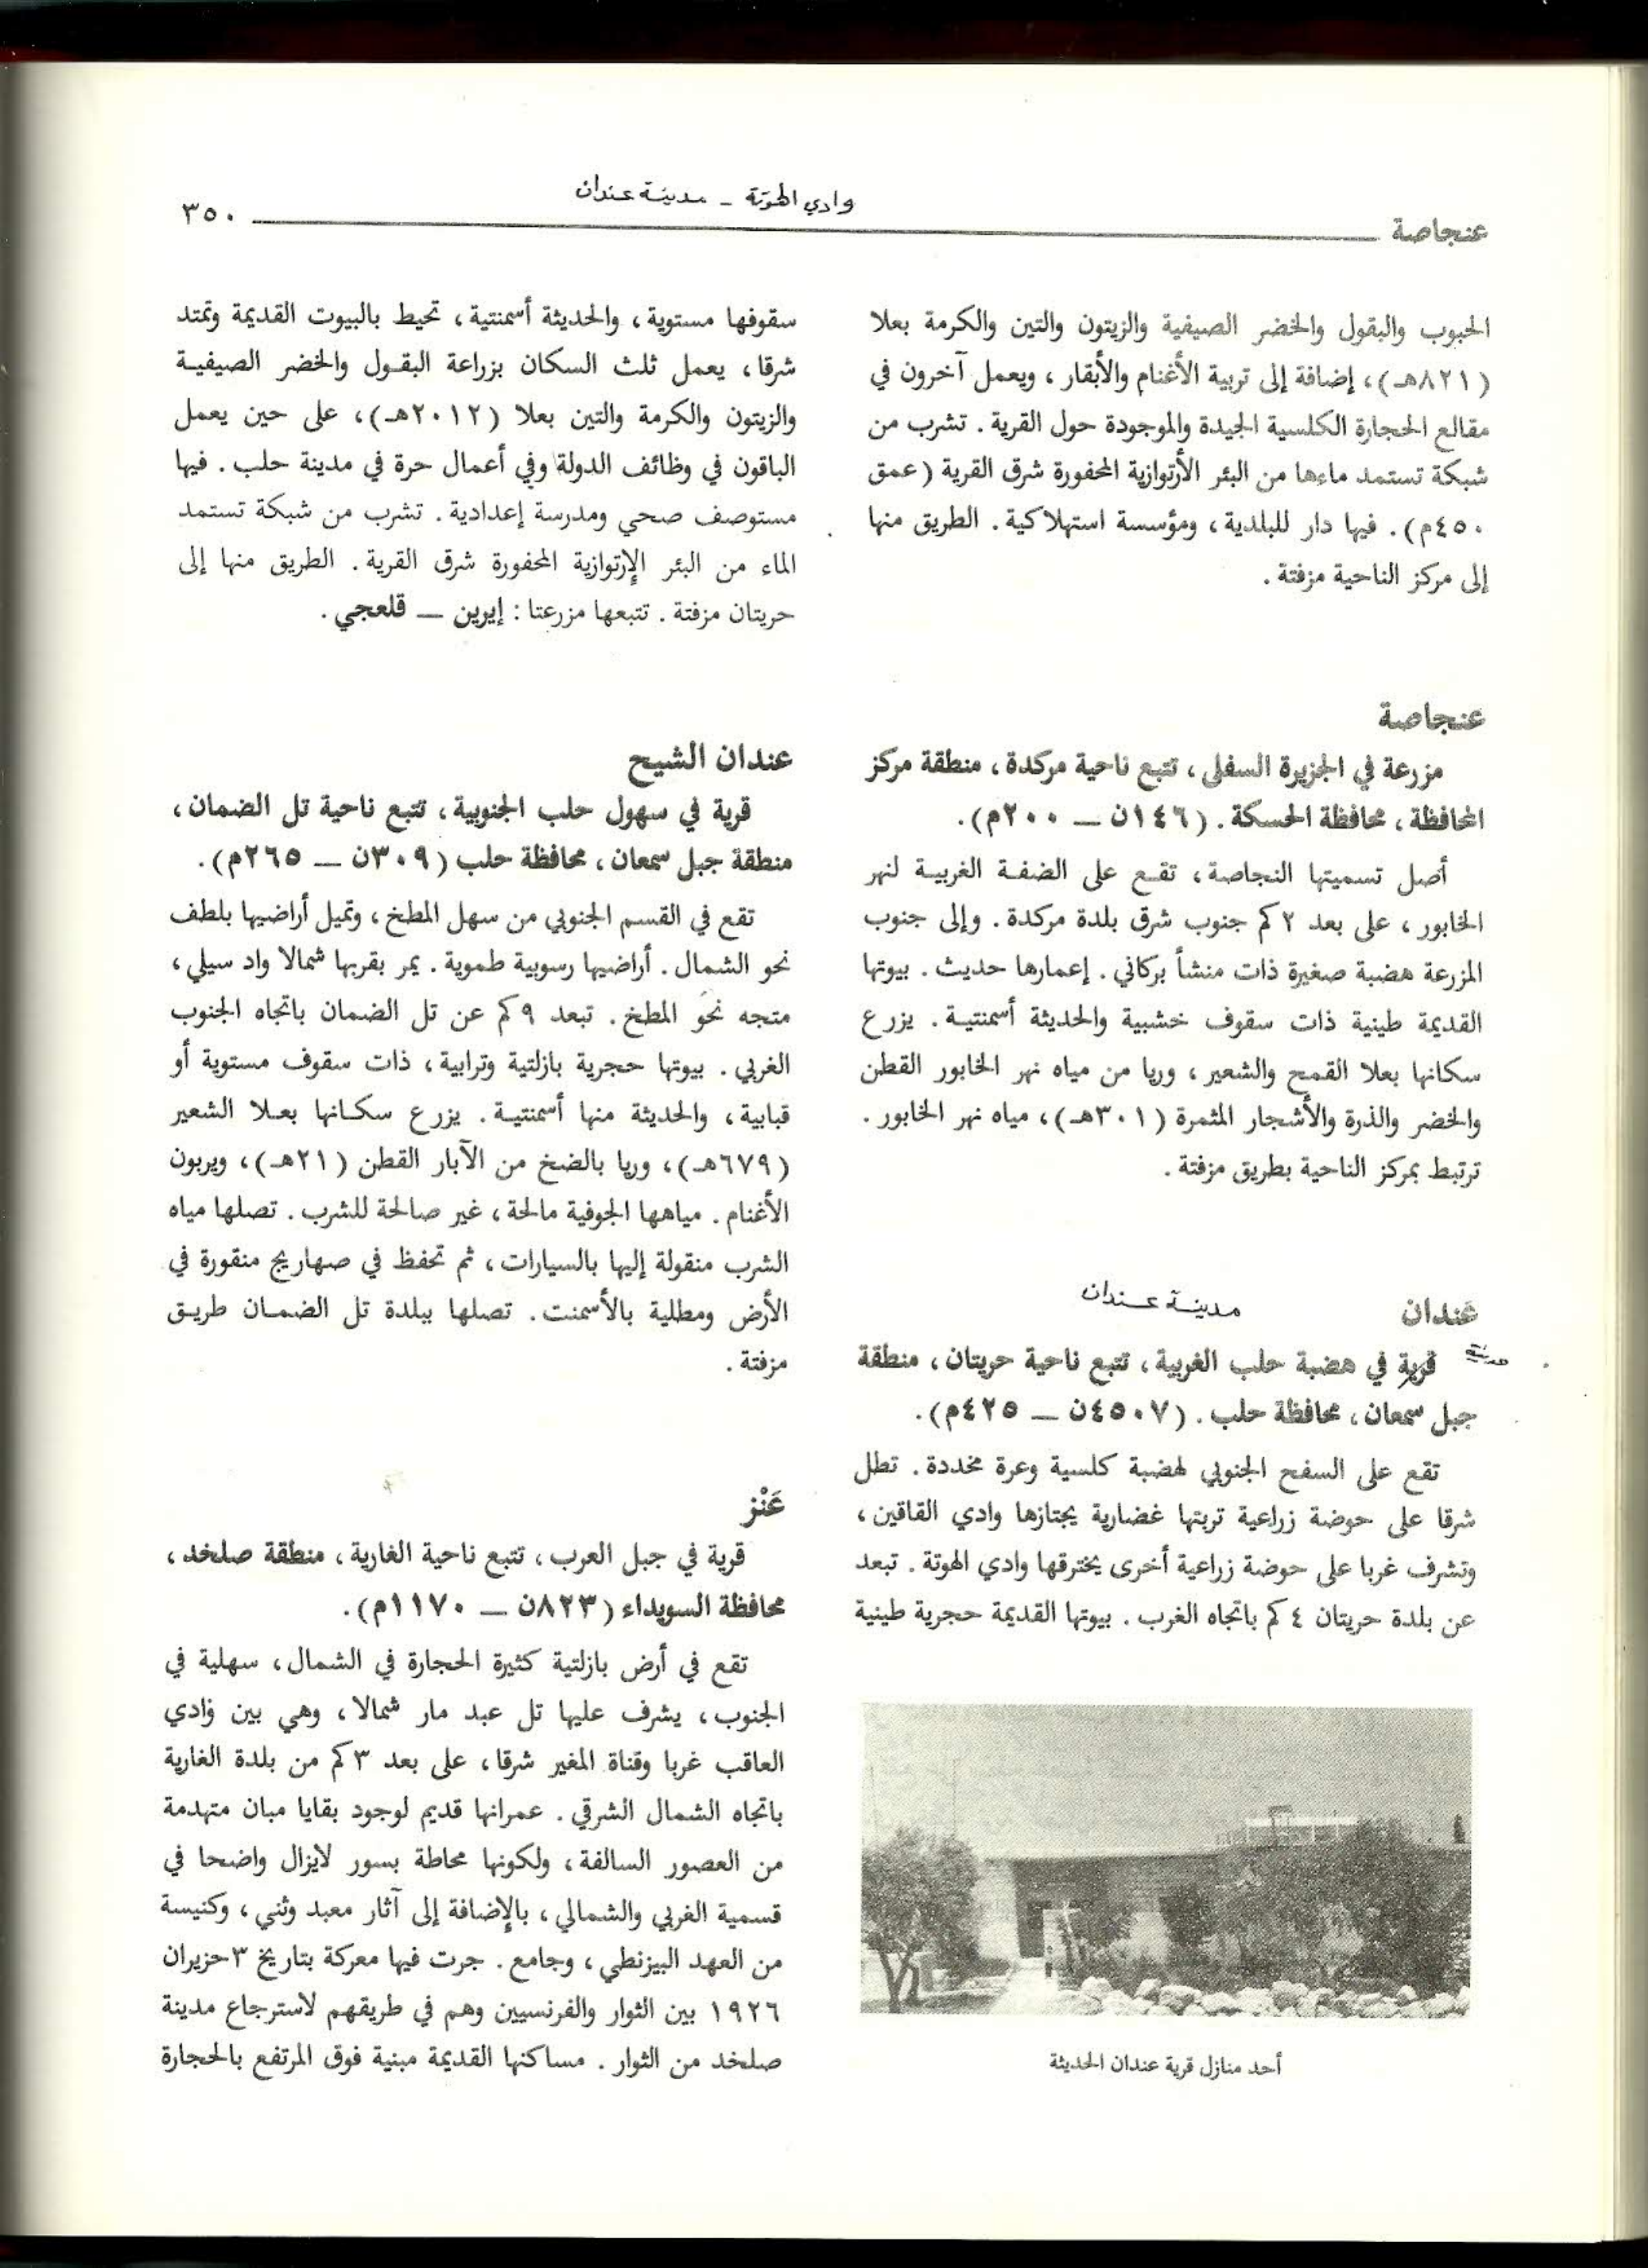 وادي الهوتة - مدينة عندان
عنجاصة
٣٥٠
الحبوب والبقول والخضر الصيفية والزيتون والتين والكرمة بعلا
(٨٢١هـ)، إضافة إلى تربية الأغنام والأبقار، ويعمل آخرون في
مقالع الحجارة الكلسية الجيدة والموجودة حول القرية. تشرب من
شبكة تستمد ماءها من البئر الأرتوازية المحفورة شرق القرية (عمق
٤٥٠م). فيها دار للبلدية، ومؤسسة استهلاكية. الطريق منها
إلى مركز الناحية مزفتة.
عنجاصة
مزرعة في الجزيرة السفلى، تتبع ناحية مركدة، منطقة مركز
المحافظة، محافظة الحسكة. (١٤٦ن ــ ٢٠٠م).
أصل تسميتها النجاصة، تقع على الضفة الغربية لنهر
الخابور، على بعد ٢كم جنوب شرق بلدة مركدة. وإلى جنوب
المزرعة هضبة صغيرة ذات منشأ بركاني. إعمارها حديث. بيوتها
القديمة طينية ذات سقوف خشبية والحديثة أسمنتية. يزرع
سكانها بعلا القمح والشعير، وريا من مياه نهر الخابور القطن
والخضر والذرة والأشجار المثمرة (٣٠١هـ)، مياه نهر الخابور.
ترتبط بمركز الناحية بطريق مزفتة.
عَندان
مدينة عندان
مدينة
قرية في هضبة حلب الغربية، تتبع ناحية حريتان، منطقة
جبل سمعان، محافظة حلب. (٤٥٠٧ن ــ ٤٢٥م).
تقع على السفح الجنوبي لهضبة كلسية وعرة مخددة. تطل
شرقا على حوضة زراعية تربتها غضارية يجتازها وادي القاقين،
وتشرف غربا على حوضة زراعية أخرى يخترقها وادي الهوتة. تبعد
عن بلدة حريتان ٤كم باتجاه الغرب. بيوتها القديمة حجرية طينية
أحد منازل قرية عندان الحديثة
سقوفها مستوية، والحديثة أسمنتية، تحيط بالبيوت القديمة وتمتد
شرقا، يعمل ثلث السكان بزراعة البقول والخضر الصيفية
والزيتون والكرمة والتين بعلا (٢٠١٢هـ)، على حين يعمل
الباقون في وظائف الدولة وفي أعمال حرة في مدينة حلب. فيها
مستوصف صحي ومدرسة إعدادية. تشرب من شبكة تستمد
الماء من البئر الإرتوازية المحفورة شرق القرية. الطريق منها إلى
حريتان مزفتة. تتبعها مزرعتا: إيرين ــ قلعجي.
عندان الشيح
قرية في سهول حلب الجنوبية، تتبع ناحية تل الضمان،
منطقة جبل سمعان، محافظة حلب (٣٠٩ن ــ ٢٦٥م).
تقع في القسم الجنوبي من سهل المطخ، وتميل أراضيها بلطف
نحو الشمال. أراضيها رسوبية طموية. يمر بقربها شمالا واد سيلي،
متجه نحو المطخ. تبعد ٩كم عن تل الضمان باتجاه الجنوب
الغربي. بيوتها حجرية بازلتية وترابية، ذات سقوف مستوية أو
قبابية، والحديثة منها أسمنتية. يزرع سكانها بعلا الشعير
(٦٧٩هـ)، وريا بالضخ من الآبار القطن (٢١هـ)، ويربون
الأغنام. مياهها الجوفية مالحة، غير صالحة للشرب. تصلها مياه
الشرب منقولة إليها بالسيارات، ثم تحفظ في صهاريج منقورة في
الأرض ومطلية بالأسمنت. تصلها ببلدة تل الضمان طريق
مزفتة.
عَنْز
قرية في جبل العرب، تتبع ناحية الغارية، منطقة صلخد،
محافظة السويداء (٨٢٣ن ــ ١١٧٠م).
تقع في أرض بازلتية كثيرة الحجارة في الشمال، سهلية في
الجنوب، يشرف عليها تل عبد مار شمالا، وهي بين وادي
العاقب غربا وقناة المغير شرقا، على بعد ٣كم من بلدة الغارية
باتجاه الشمال الشرقي. عمرانها قديم لوجود بقايا مبان متهدمة
من العصور السالفة، ولكونها محاطة بسور لايزال واضحا في
قسمية الغربي والشمالي، بالإضافة إلى آثار معبد وثني، وكنيسة
من العهد البيزنطي، وجامع. جرت فيها معركة بتاريخ ٣حزيران
١٩٢٦ بين الثوار والفرنسيين وهم في طريقهم لاسترجاع مدينة
صلخد من الثوار. مساكنها القديمة مبنية فوق المرتفع بالحجارة